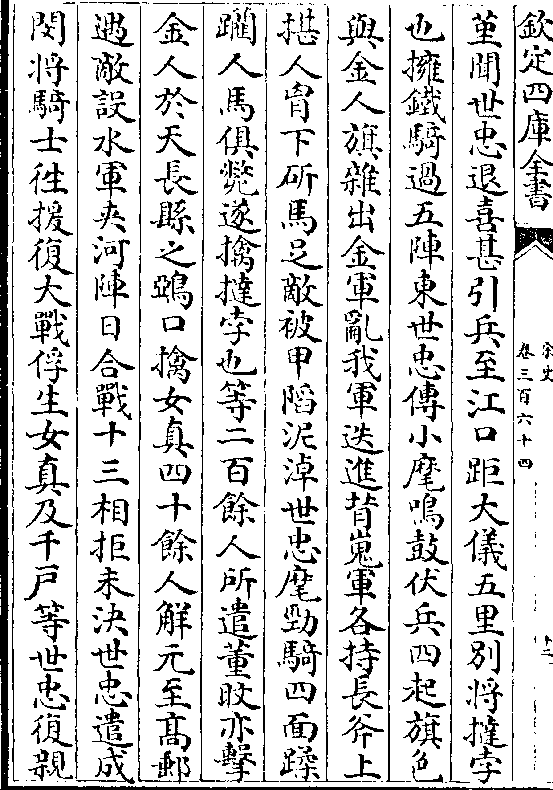 欽定四庫全書
宋史
卷三百六十四
堇聞世忠退喜甚引兵至江口距大儀五里別將撻孛
也擁鐵騎過五陣東世忠傳小麾鳴鼓伏兵四起旗色
與金人旗雜出金軍亂我軍迭進背嵬軍各持長斧上
揕人胷下斫馬足敵被甲陷泥淖世忠麾勁騎四面蹂
躪人馬俱斃遂擒撻孛也等二百餘人所遣董旼亦擊
金人於天長縣之鵶口擒女真四十餘人解元至高郵
遇敵設水軍夾河陣日合戰十三相拒未決世忠遣成
閔將騎士徃援復大戰俘生女真及千戶等世忠復親